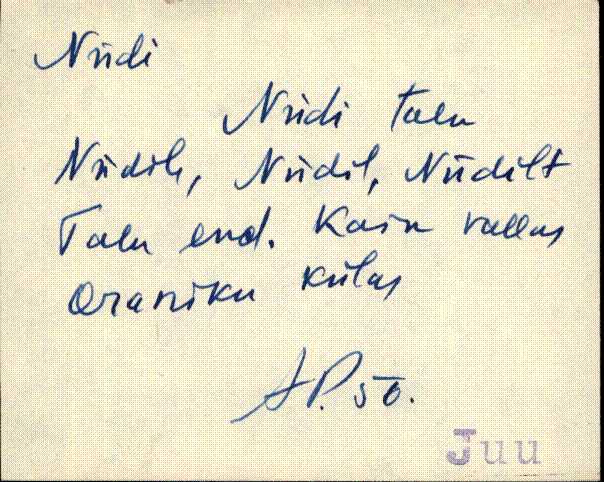 Nüdi
Nüdi talu
Nüdile, Nüdil, Nüdilt
Talu end. Kaiu vallas
Oraniku külas
AP. 50.
Juu